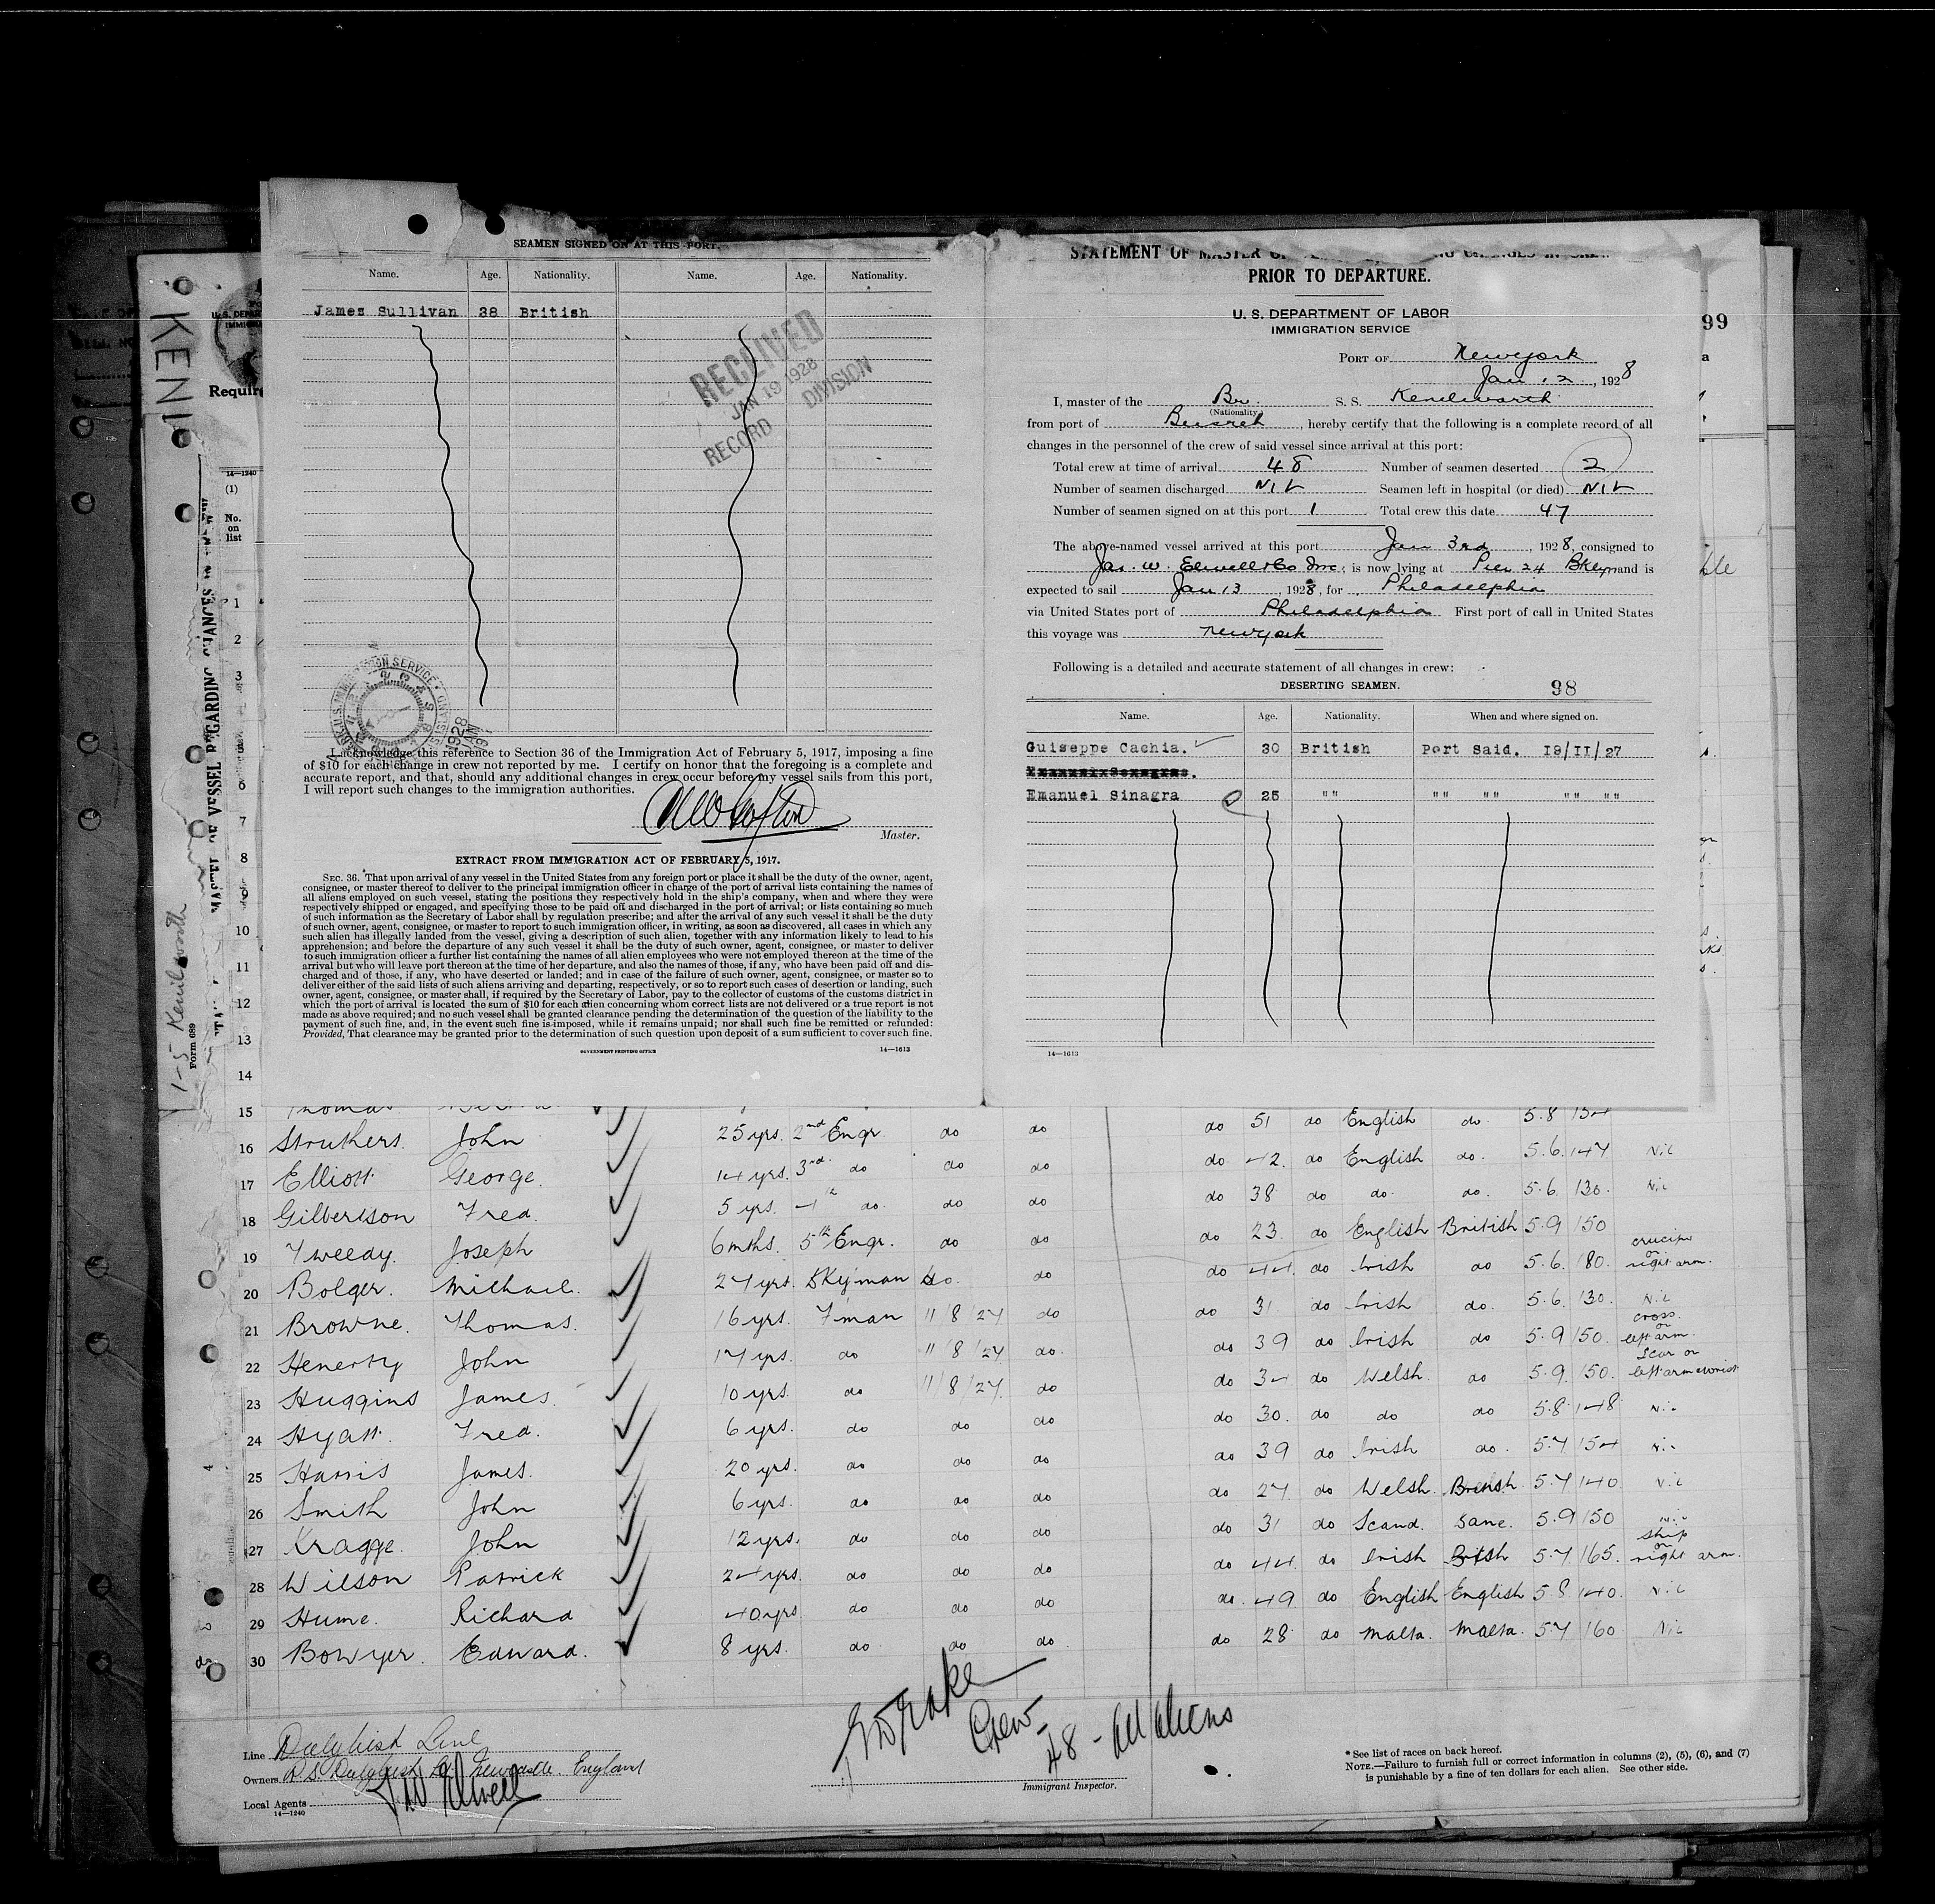 SEAMEN SIGNED ON AT THIS PORT.
Name. Age. Nationality. Name. Age. Nationality.
James Sullivan 38 British
RECEIVED
JAN 19 1928
RECORD DIVISION
I acknowledge this reference to Section 36 of the Immigration Act of February 5, 1917, imposing a fine
of $10 for each change in crew not reported by me. I certify on honor that the foregoing is a complete and
accurate report, and that, should any additional changes in crew occur before my vessel sails from this port,
I will report such changes to the immigration authorities.
Master.
EXTRACT FROM IMMIGRATION ACT OF FEBRUARY 5, 1917.
SEC. 36. That upon arrival of any vessel in the United States from any foreign port or place it shall be the duty of the owner, agent,
consignee, or master thereof to deliver to the principal immigration officer in charge of the port of arrival lists containing the names of
all aliens employed on such vessel, stating the positions they respectively hold in the ship's company, when and where they were
respectively shipped or engaged, and specifying those to be paid off and discharged in the port of arrival; or lists containing so much
of such information as the Secretary of Labor shall by regulation prescribe; and after the arrival of any such vessel it shall be the duty
of such owner, agent, consignee, or master to report to such immigration officer, in writing, as soon as discovered, all cases in which any
such alien has illegally landed from the vessel, giving a description of such alien, together with any information likely to lead to his
apprehension; and before the departure of any such vessel it shall be the duty of such owner, agent, consignee, or master to deliver
to such immigration officer a further list containing the names of all alien employees who were not employed thereon at the time of the
arrival but who will leave port thereon at the time of her departure, and also the names of those, if any, who have been paid off and dis-
charged and of those, if any, who have deserted or landed; and in case of the failure of such owner, agent, consignee, or master so to
deliver either of the said lists of such aliens arriving and departing, respectively, or so to report such cases of desertion or landing, such
owner, agent, consignee, or master shall, if required by the Secretary of Labor, pay to the collector of customs of the customs district in
which the port of arrival is located the sum of $10 for each alien concerning whom correct lists are not delivered or a true report is not
made as above required; and no such vessel shall be granted clearance pending the determination of the question of the liability to the
payment of such fine, and, in the event such fine is imposed, while it remains unpaid; nor shall such fine be remitted or refunded:
Provided, That clearance may be granted prior to the determination of such question upon deposit of a sum sufficient to cover such fine.
GOVERNMENT PRINTING OFFICE 14—1613
STATEMENT OF MASTER OF
PRIOR TO DEPARTURE.
U. S. DEPARTMENT OF LABOR
IMMIGRATION SERVICE
PORT OF Newyork
Jan 12, 1928
I, master of the Br. S. S. Kenilworth
(Nationality)
from port of , hereby certify that the following is a complete record of all
changes in the personnel of the crew of said vessel since arrival at this port:
Total crew at time of arrival 48 Number of seamen deserted 2
Number of seamen discharged NIL Seamen left in hospital (or died) NIL
Number of seamen signed on at this port 1 Total crew this date 47
The above-named vessel arrived at this port Jan 3rd, 1928, consigned to
Jas. W. Elwell & Co Inc; is now lying at Pier 24 Bklyn and is
expected to sail Jan 13, 1928, for Philadelphia
via United States port of Philadelphia First port of call in United States
this voyage was Newyork
Following is a detailed and accurate statement of all changes in crew:
DESERTING SEAMEN. 98
Name. Age. Nationality. When and where signed on.
Guiseppe Cachia. 30 British Port Said. I9/II/27
Emanuel Sinagra 25 "" "" "" "" ""
14—1613
99
KENIL
1-5 Kenilworth
Form 689
MASTER OF VESSEL REGARDING CHANGES
14—1240
(1)
No. on list
1
2
3
5
6
7
8
9
10
11
12
13
14
15 Thomas do 51 do English do 5.8 154
16 Struthers. John 25 yrs. 2nd Engr. do do do 42. do English do. 5.6. 147 Nil
17 Elliott George. 14 yrs. 3rd do do do do 38 do do. do. 5.6. 130. Nil
18 Gilbertson Fred. 5 yrs. 4th do. do do do 23. do English British 5.9 150
19 Tweedy. Joseph 6 mths. 5th Engr. do do do 44. do Irish do 5.6. 180. crucifix on right arm.
20 Bolger. Michael. 24 yrs. Dkyman do. do do 31 do Irish do. 5.6. 130. Nil
21 Browne. Thomas. 16 yrs. Fman 11/8/27 do do 39 do Irish do 5.9 150. cross. on left arm.
22 Henerty John 17 yrs. do 11/8/27 do. do 34 do Welsh. do 5.9. 150. Scar on left arm & wrist
23 Huggins James. 10 yrs. do 11/8/27 do do 30. do do do 5.8 148 Nil
24 Hyatt. Fred. 6 yrs. do do do do 39 do Irish do. 5.7 154 Nil
25 Harris James. 20 yrs. do do do do 27 do Welsh. British 5.7 140 Nil
26 Smith John 6 yrs. do do do do 31 do Scand. Dane. 5.9 150 Nil
27 Kragge. John 12 yrs. do do do do 44 do Irish British 5.7 165. ship on right arm.
28 Wilson Patrick 24 yrs. do do do do. 49 do English English 5.8 140. Nil
29 Hume. Richard 40 yrs. do do do do 28 do Malta. Malta. 5.7 160 Nil
30 Bowyer. Edward. 8 yrs. do do do
Crew—
48 - All Aliens
Line Dalgliesh Line
Owners R. S. Dalgliesh Ld. Newcastle. England
Local Agents J W Elwell
14—1240
Immigrant Inspector.
* See list of races on back hereof.
NOTE.—Failure to furnish full or correct information in columns (2), (5), (6), and (7)
is punishable by a fine of ten dollars for each alien. See other side.